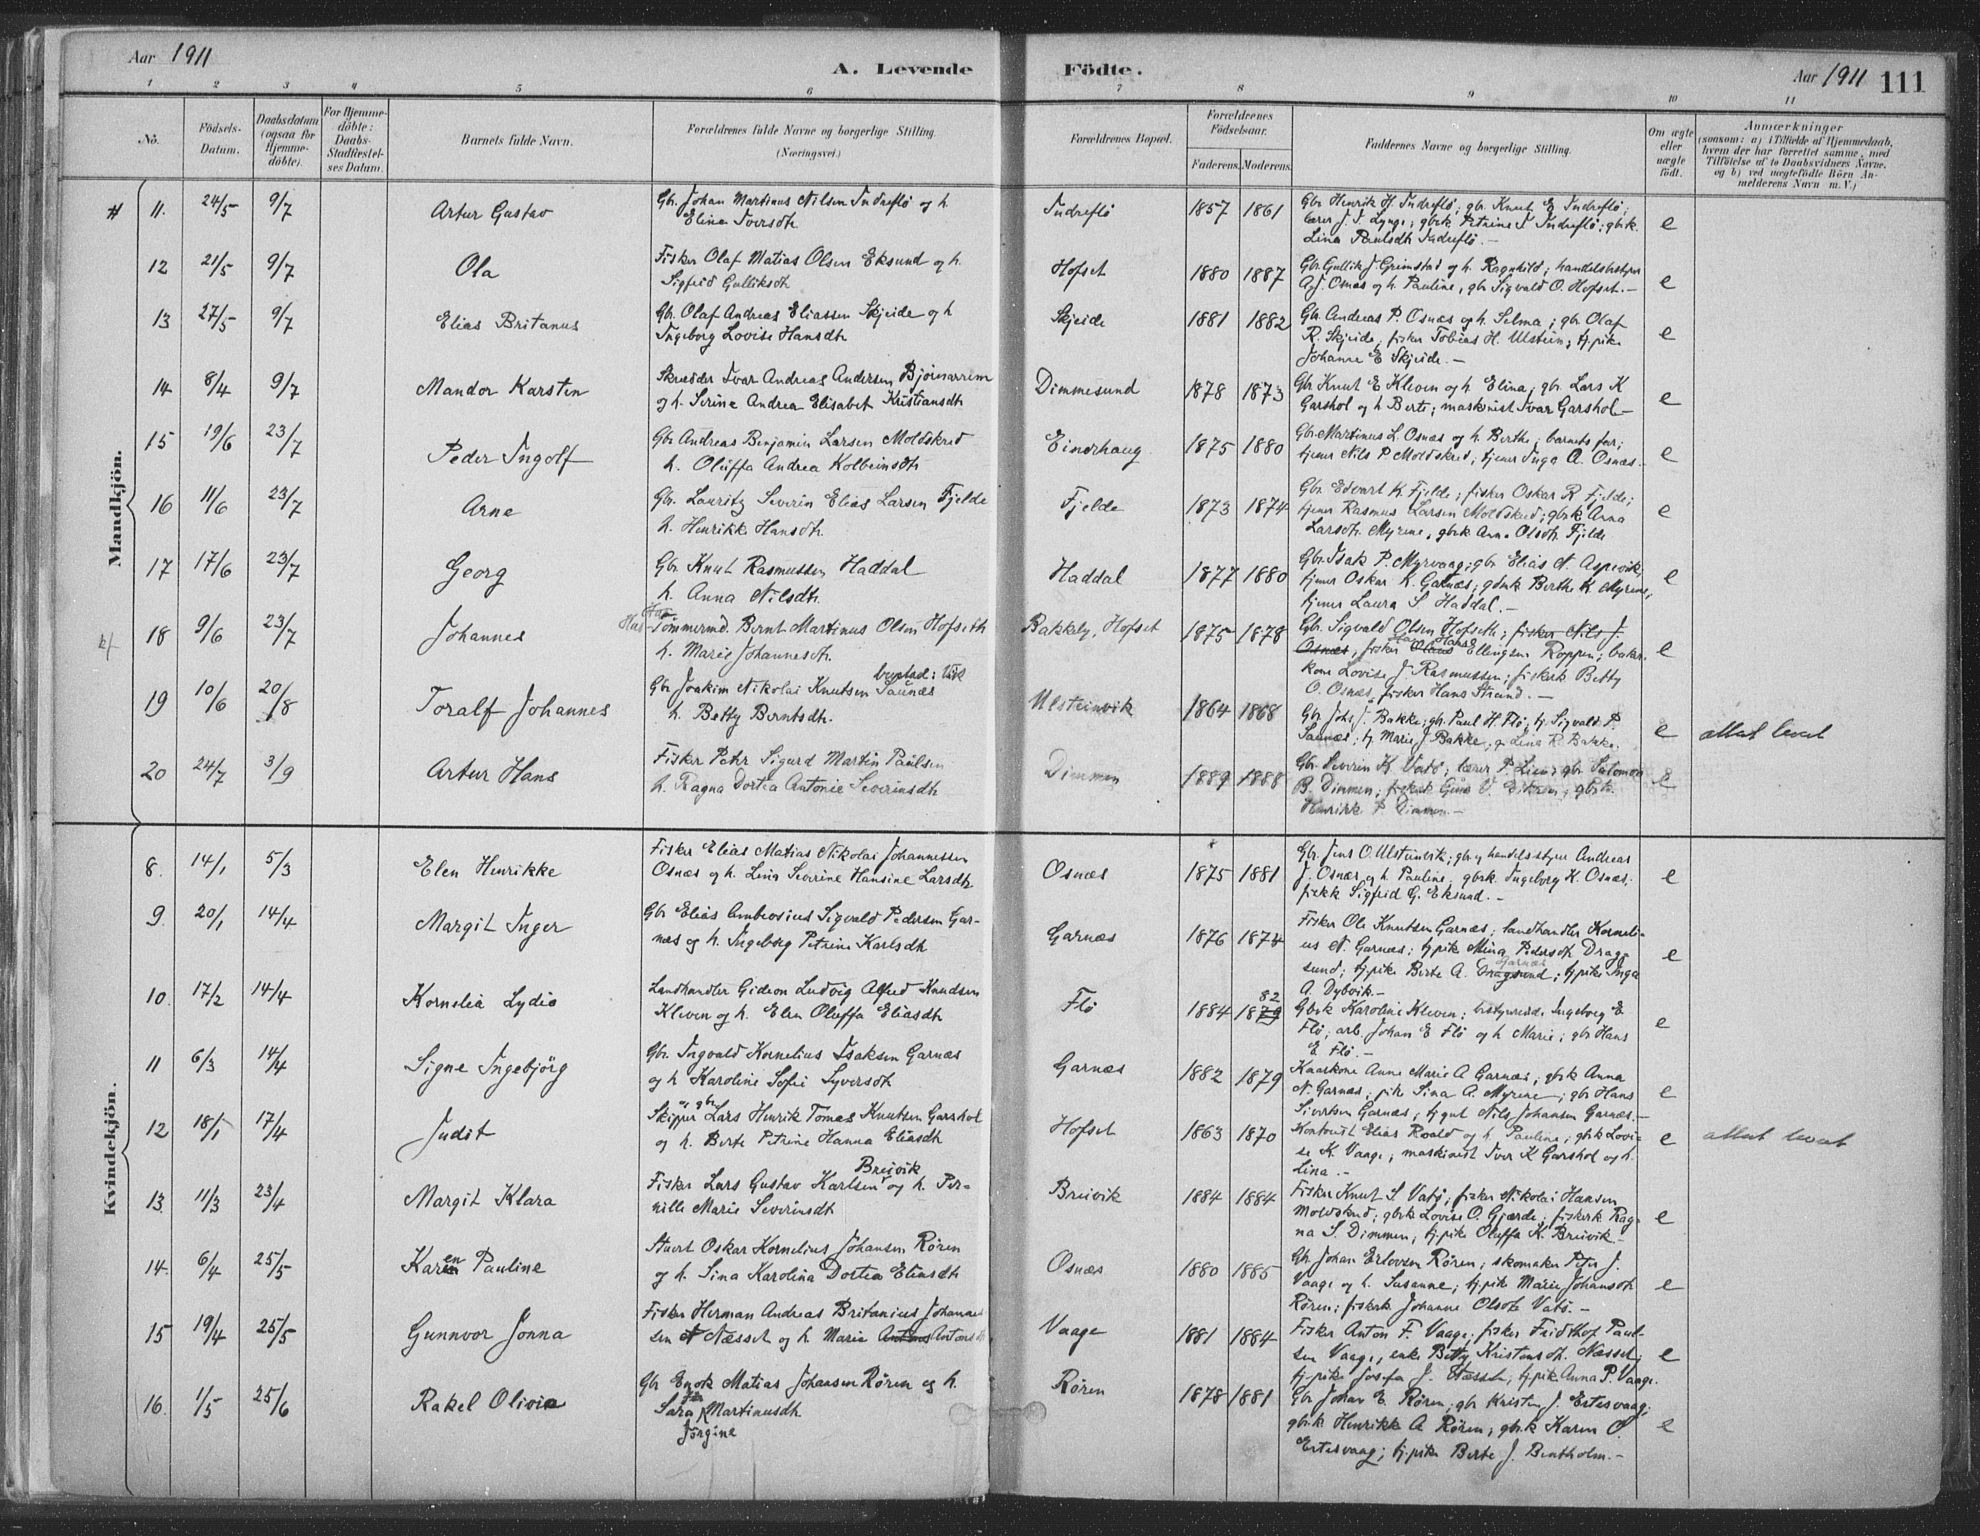 Aar 1911
A. Levende Födte.
Aar 1911 111
1 2 3 4 5 6 7 8 9 10 11
No.
Födsels-Datum.
Daabsdatum (ogsaa for Hjemme-döbte).
For Hjemme-döbte: Daabs-Stadfæstel-ses Datum.
Barnets fulde Navn.
Forældrenes fulde Navne og borgerlige Stilling.
(Næringsvei.)
Forældrenes Bopæl.
Forældrenes Födselsaar.
Faderens. Moderens.
Faddernes Navne og borgerlige Stilling.
Om ægte eller uægte födt.
Anmærkninger
(saasom: a) i Tilfælde af Hjemmedaab,
hvem der har forrettet samme, med
Tilföielse af to Daabsvidners Navne,
og b) ved uægtefödte Börn An-
melderens Navn m. V.)
Mandkjön.
11. 24/5 9/7 Artur Gustav
Gbr. Johan Martinus Nilsen Indreflö og h.
Elina Iversdtr.
Indreflö 1857 1861
Gbr. Henrik H. Indreflö; gbr. Knut E. Indreflö;
lærer J. J. Lynge; gbrk. Petrine I. Indreflö; gbrk.
Lina Paulsdtr Indreflö. –
e
12 21/5 9/7 Ola
Fisker Olaf Matias Olsen Eksund og h.
Sigfrid Gulliksdtr
Hofset 1880 1887
Gbr. Gullik J. Grimstad og h. Ragnhild; handelsbestyrer
A. J. Osnæs og h. Pauline, gbr Sigvald O. Hofset. –
e
13 27/5 9/7 Elias Britanus
Gbr. Olaf Andreas Eliassen Skjeide og h
Ingeborg Lovise Hansdtr
Skjeide 1881 1882
Gbr. Andreas P. Osnæs og h. Selma; gbr. Olaf
R. Skjeide; fisker Tobias H. Ulstein; tj.pike
Johanne E Skjeide. –
e
14 8/4 9/7 Mandor Karsten
Skrædder Ivar Andreas Andersen Björnarrem
og h. Serine Andrea Elisabet Kristiansdtr
Dimmesund 1878 1873
Gbr Knut E Kleven og h Elina; gbr. Lars K
Garshol og h Berte; maskinist Ivar Garshol –
e
15 19/6 23/7 Peder Ingolf
Gbr. Andreas Benjamin Larsen Moldskred
h. Oluffa Andrea Kolbeinsdtr
Eindrhaug 1875 1880
Gbr. Martinus L. Osnæs og h. Berthe; barnets far;
tjener Nils P Moldskred; tjener Inga A. Osnæs.
e
16 11/6 23/7 Arne
Gbr. Lauritz Severin Elias Larsen Fjelde
h. Henrikke Hansdtr.
Fjelde 1873 1874
Gbr. Edvart K. Fjelde; fisker Oskar R Fjelde;
tjener Rasmus Larsen Moldskred; gbrk Anna
Larsdtr Myrene, gbrk Anna Olsdtr. Fjelde
e
17 17/6 23/7 Georg
Gbr. Knut Rasmussen Haddal
h. Anna Nilsdtr.
Haddal 1877 1880
Gbr. Isak P. Myrvaag; gbr Elias N. Aspevik;
tjener Oskar K. Garnæs; gbrk Berthe K Myrene,
tjener Laura S Haddal. –
e
18 9/6 23/7 Johannes
Tömmermd. Bernt Martinus Olsen Hofseth
h. Marie Johannesdtr.
Bakkely, Hofset 1875 1878
Gbr. Sigvald Olsen Hofseth; fisker Nils J.
Osnæs, fisker Olaus Hans Ellingsen Roppen; baker-
kone Lovise J. Rasmussen; fiskerk Betty
O. Osnæs, fisker Hans Strand. –
e
19 10/6 20/8 Toralf Johannes
bustad: Vik
Gbr Joakim Nikolai Knutsen Saunes
h. Betty Berntsdtr.
Ulsteinvik 1864 1868
Gbr. Johs J. Bakke; gbr. Paul H. Flö, tj. Sigvald P.
Saunæs; tj. Marie J Bakke, Lina R. Bakke.
e attest levert
20 24/7 3/9 Artur Hans
Fisker Petr Sigurd Martin Paulsen
h. Ragna Dortea Antonie Severinsdtr
Dimmen 1889 1888
Gbr. Severin K. Vatö; lærer P. Lien; gbr Salomon
B. Dimmen; fiskerk Gina V. Eiksen; gbrk.
Henrikke P Dimmen –
e
Kvindekjön.
8. 14/1 5/3 Elen Henrikke
Fisker Elias Matias Nikolai Johannessen
Osnæs og h. Lina Severine Hansine Larsdtr
Osnæs 1875 1881
Gbr. Jens O. Ulsteinvik; gbr og handelsstyrer Andreas
J. Osnæs og h. Pauline, gbrk. Ingeborg K. Osnæs.
fiskk Sigfrid G. Eksund. –
e
9. 20/1 14/4 Margit Inger
Gbr Elias Ambrosius Sigvald Pedersen Gar-
næs og h. Ingeborg Petrine Karlsdtr
Garnæs 1876 1874
Fisker Ole Knutsen Garnæs; landhandler Korneli-
us N. Garnæs; tj.pik Mina Pedersdtr Drag-
sund; tj.pike Berte A. Dragsund Garnæs; tj.pike Inga
A. Dybvik. –
e
10. 17/2 14/4 Kornelia Lydia
Landhandler Gideon Ludvig Alfred Knudsen
Kleven og h. Elen Oluffa Eliasdtr
Flö 1884 1879 82
Gbrk Karoline Kleven; bestyrerinde Ingeborg E
Flö; arb. Johan E Flö og h Marie; gbr Hans
E Flö. –
e
11 6/3 14/4 Signe Ingebjörg
Gbr. Ingvald Kornelius Isaksen Garnæs
og h Karoline Sofie Syversdtr
Garnæs 1882 1879
Kaarkone Anne Marie A Garnæs; gbrk Anna
N. Garnæs; pik Sina A. Myrene; gbr Hans
Sivertsen Garnæs; tj.gut Nils Johansen Garnæs. –
e
12 18/1 17/4 Judit
Skipper og gbr Lars Henrik Tomas Knutsen Garshol
og h. Berte Petrine Hanna Eliasdtr
Hofset 1863 1870
Kontorist Elias Roald og h Pauline; gbrk Lovi-
se K Vaage; maskinist Iver K Garshol og h.
Lina. –
e attest levert
13. 11/3 23/4 Margit Klara
Fisker Lars Gustav Karlsen Breivik og h. Per-
nille Marie Severinsdtr
Breivik 1884 1884
Fisker Knut S Vatö; fisker Nikolai Hansen
Moldskred; gbrk Lovise O. Gjærde; fiskerk Rag-
na S. Dimmen; tj.pik Oluffa K. Breivik –
e
14. 6/4 25/5 Karen Pauline
Stuert Oskar Kornelius Johansen Rören
og h. Sina Karolina Dortea Eliasdtr
Osnæs 1880 1885
Gbr. Johan Erlovsen Rören; skomaker Peter J.
Vaage og h. Susanne; tj.pik Marie Johansdtr
Rören; fiskerk Johanne Olsdtr Vatö. –
e
15 19/4 25/5 Gunnvor Jonna
Fisker Herman Andreas Britanius Johannes-
sen Næsset og h Marie Antons Antonsdtr
Vaage 1881 1884
Fisker Anton F. Vaage, fisker Fridthof Paul-
sen Vaage, enke Betty Kristensdtr. Næsset,
tj.pike Josefa J. Næsset, tj.pik Anna P. Vaage.
e
16. 1/5 25/6 Rakel Olivia
Gbr Enok Matias Johansen Rören og h.
Sara Martinusdtr
Jörgine
Rören 1878 1881
Gbr Johan E. Rören; gbr Kristen J. Ertesvaag;
gbrk Henrikk A Rören; gbrk Karen O.
Ertesvaag; tj.pike Berte J. Bentholm. –
e